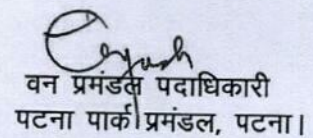 वन प्रमंडल पदाधिकारी
पटना पार्क प्रमंडल, पटना।